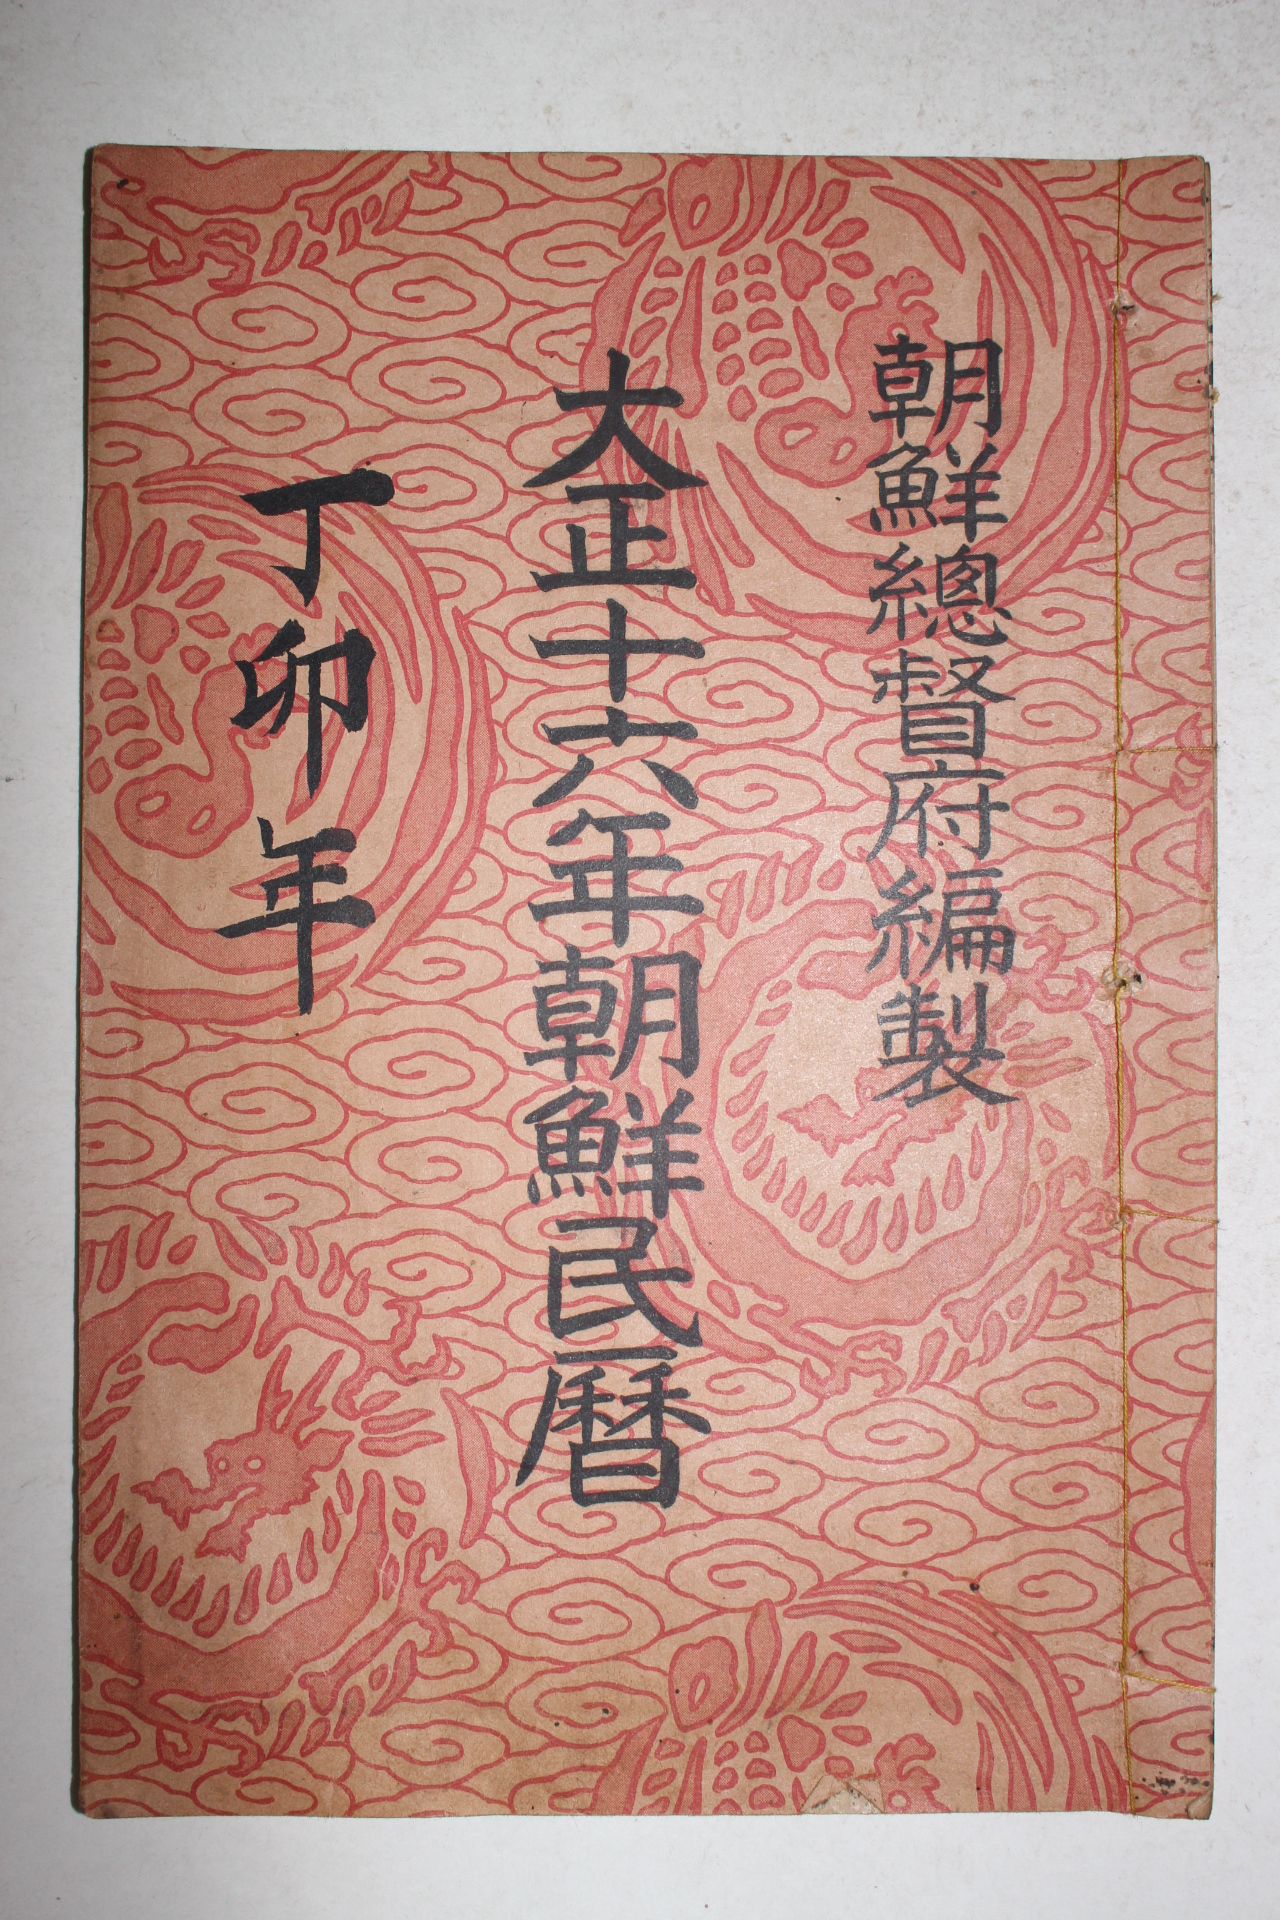 朝鮮總督府編製
大正十六年朝鮮民曆
丁卯年